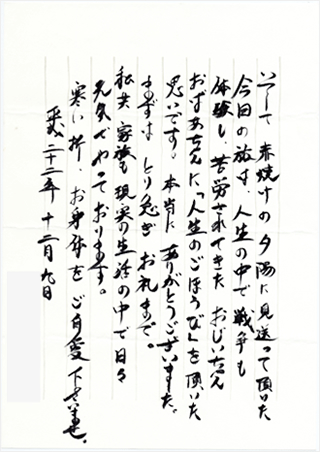 そして 真焼けの夕陽に見送って頂いた
今回の旅は、人生の中で戦争も
体験し、苦労されてきた おじいちゃん
おばあちゃんに「人生のごほうび」を頂いた
思いです。本当に ありがとうございました。
まずは とり急ぎ お礼まで。
私共 家族も 現実の生活の中で 日々
元気でやっております。
寒い折、お身体を ご自愛 下さいませ。
平成二十二年 十二月 九日